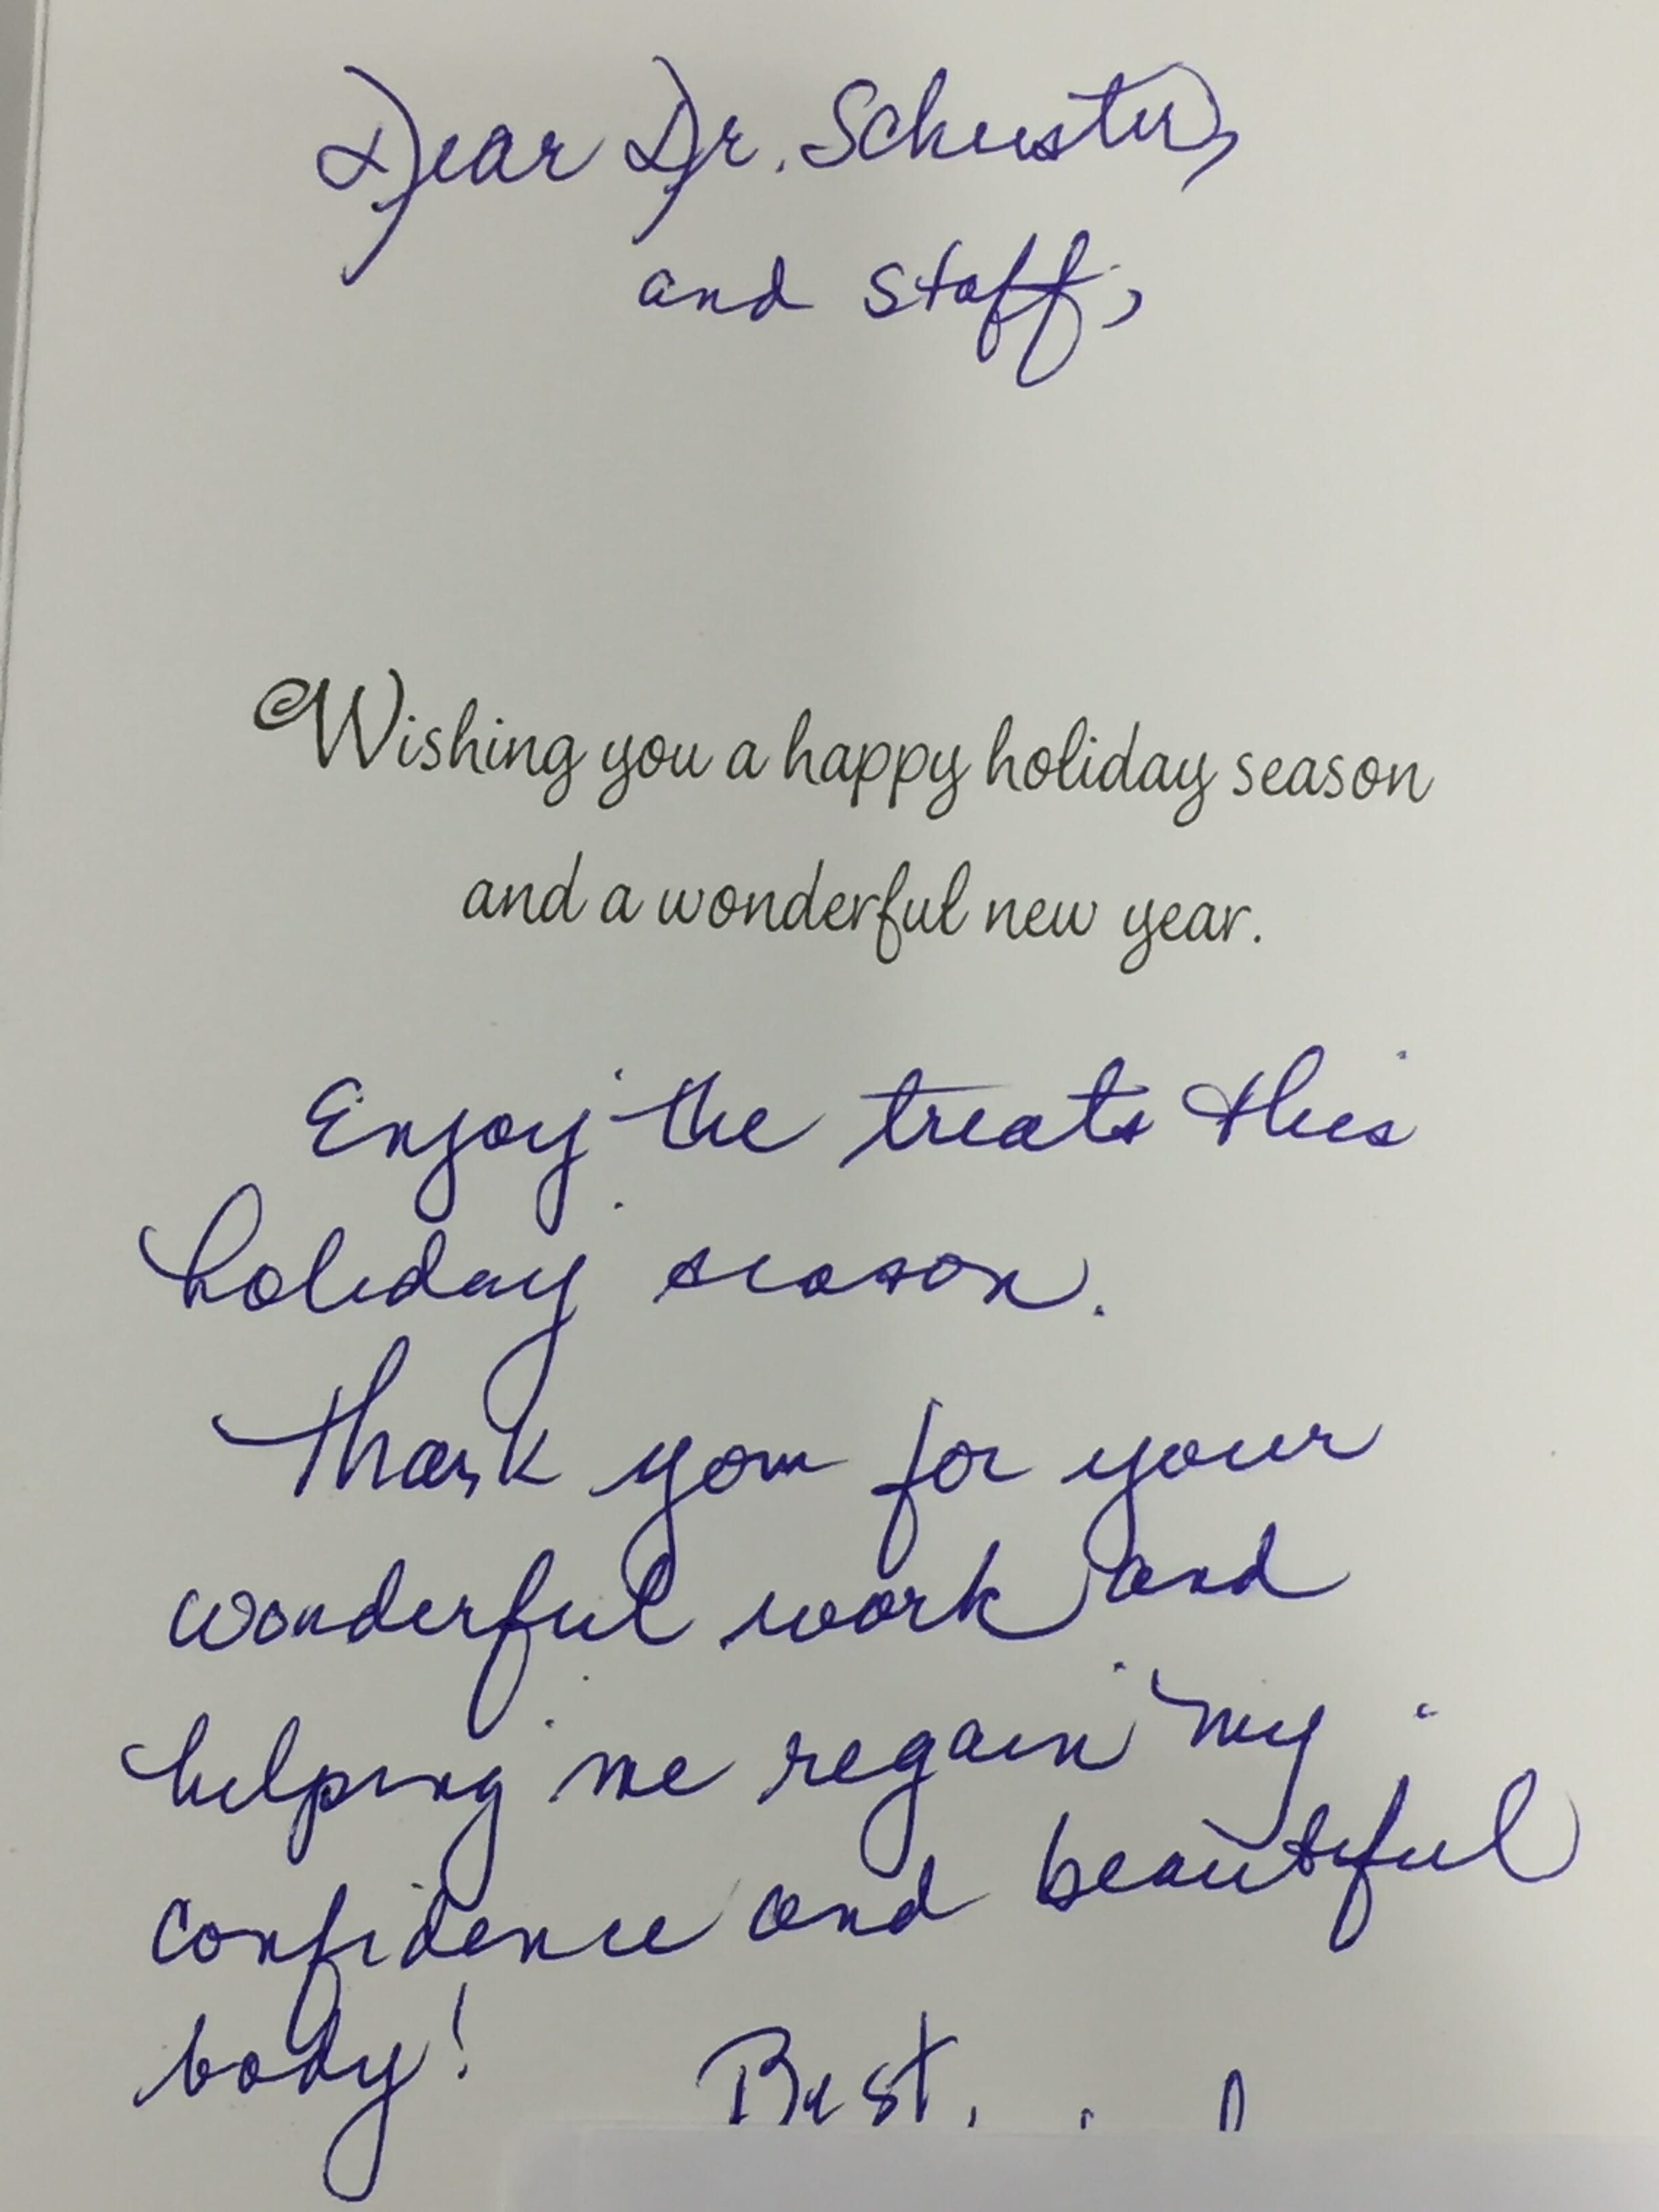 Dear Dr. Schuster,
and staff,
Wishing you a happy holiday season
and a wonderful new year.
Enjoy the treats this
holiday season.
Thank you for your
wonderful work and
helping me regain my
confidence and beautiful
body!
Best,